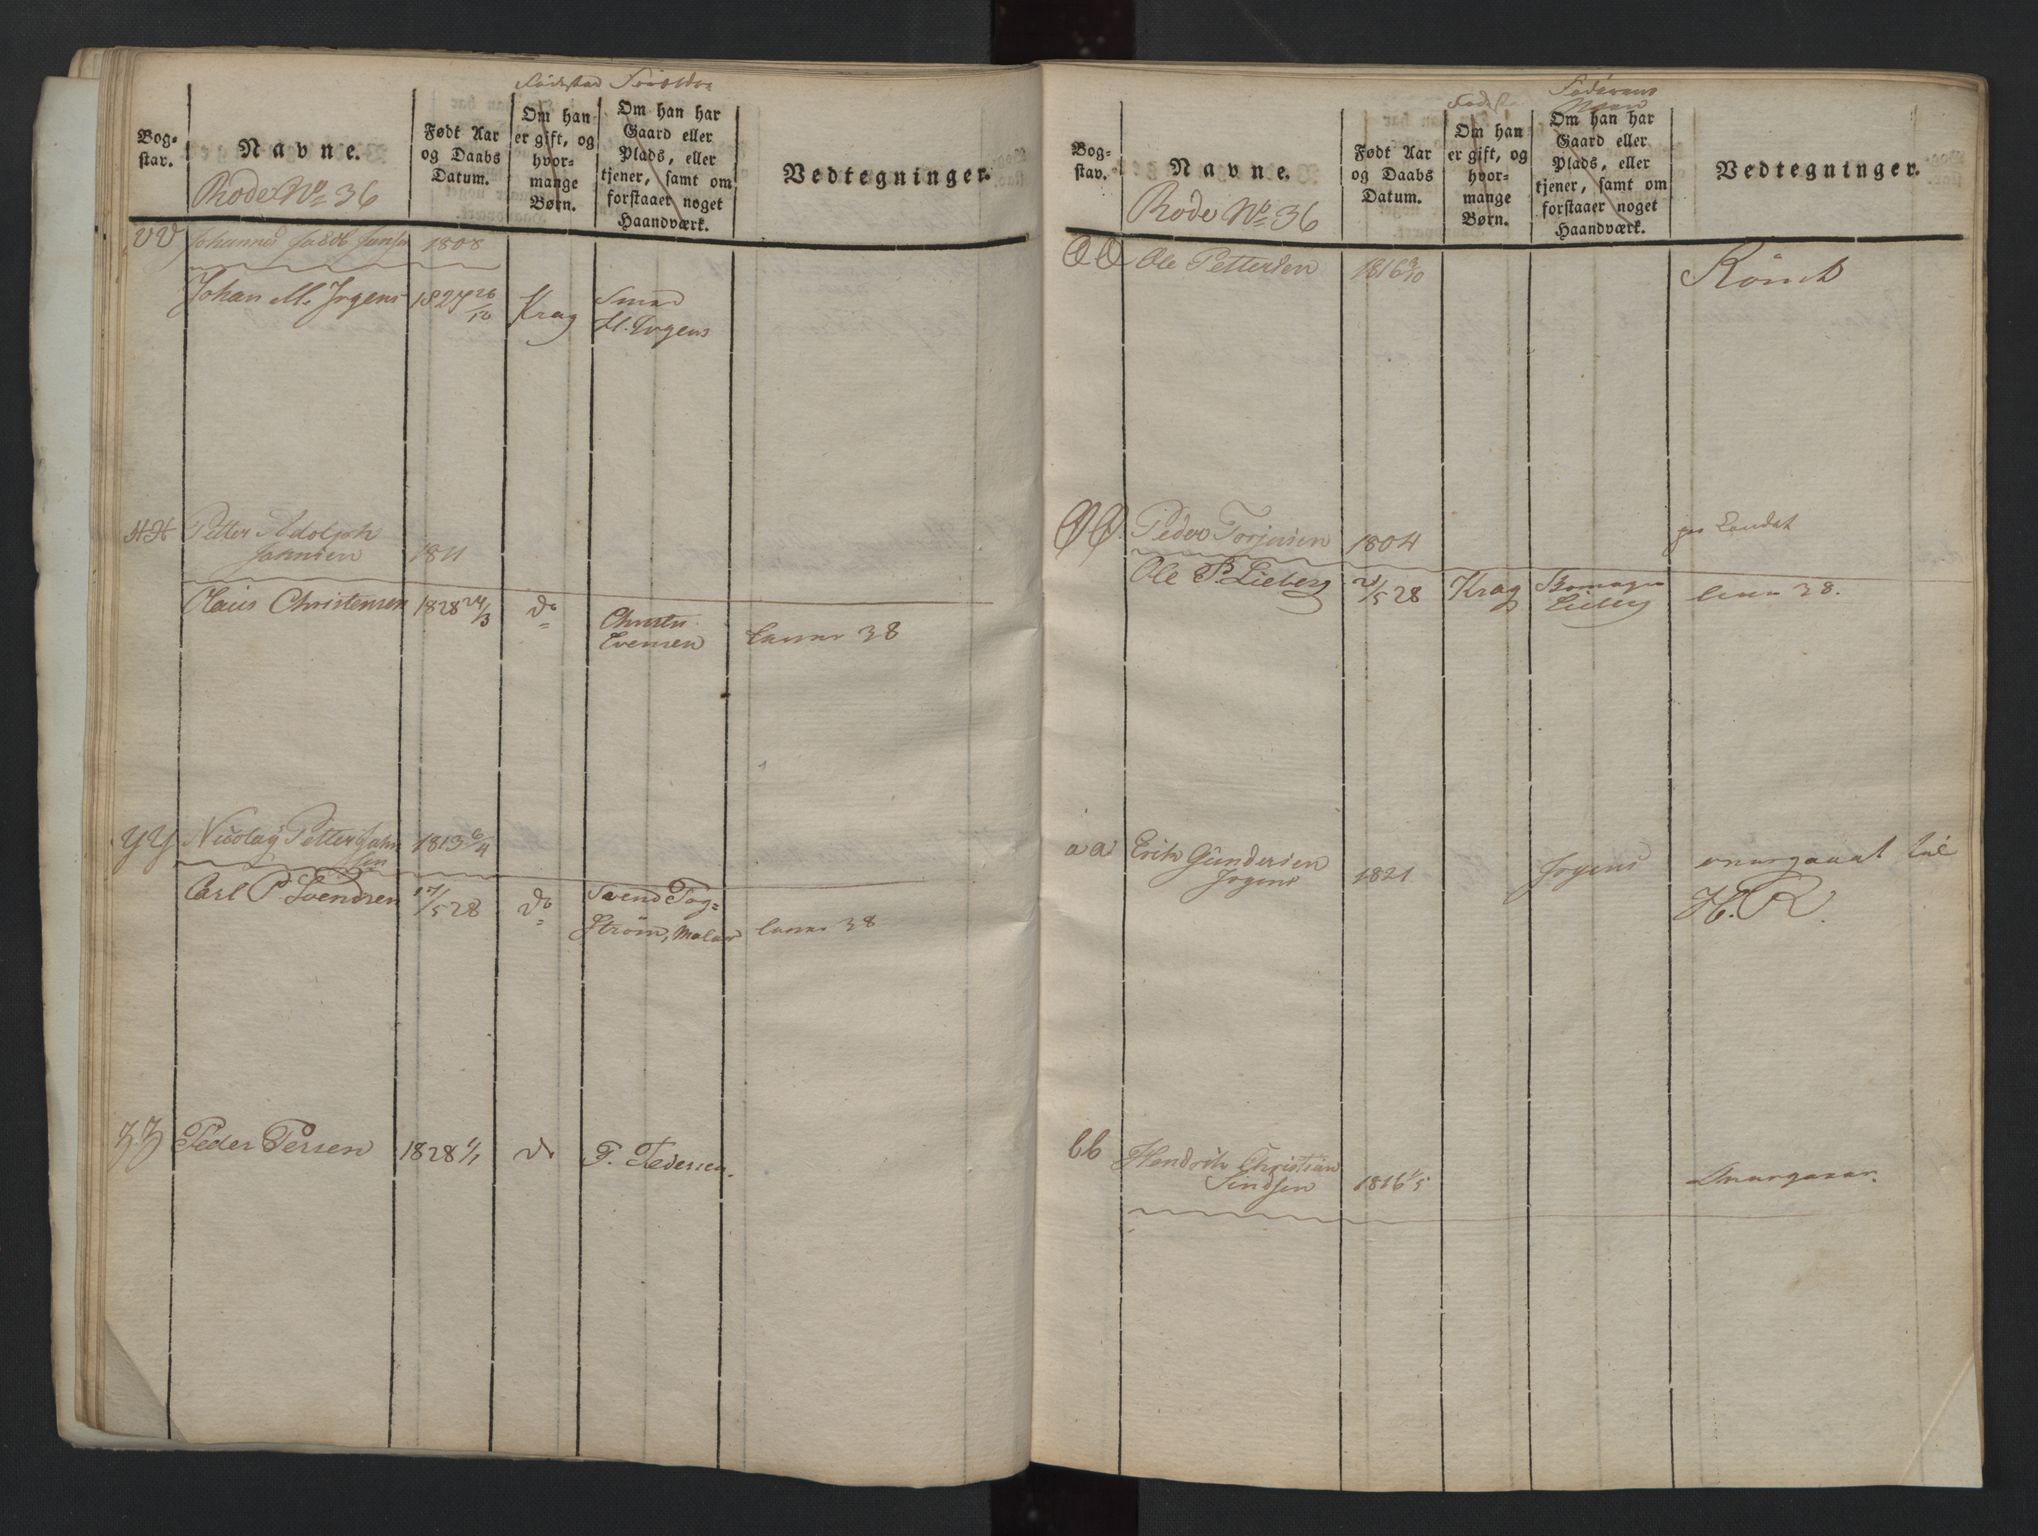 Fødested Forældre
Bog-
stav.
Navne.
Rode No 36
Født Aar
og Daabs
Datum.
Om han
er gift, og
hvor-
mange
Børn.
Om han har
Gaard eller
Plads, eller
tjener, samt om
forstaaer noget
Haandværk.
Vedtegninger.
VV Johannes Jacob Jansen 1808
Johan M. Jrgens 1827 26/10 Krag Smed
M. Jrgens
HH Petter Adolph
Johnsen 1811
Claus Christensen 1828 24/3 do Christen
Evensen 38
YY Nicolay Petter John
sen 1813 6/4
Carl P Svendsen 17/5 28 do Svend Tog=
Strøm, Maler 38
ZZ Peder Persen 1828 1/1 do P. Pedersen.
Faderens
Navn
Bog-
stav.
Navne.
Rode No 36
Født Aar
og Daabs
Datum.
Om han
er gift, og
hvor-
mange
Børn.
Om han har
Gaard eller
Plads, eller
tjener, samt om
forstaaer noget
Haandværk.
Vedtegninger.
ÆÆ Ole Pettersen 1816 3/10
ØØ Peder Torjusen 1804 paa Landet
Ole P. Lieberg 21/5 28 Krag
Lieberg 38.
aa Erik Gundersen
Jrgens 1821 Jrgens overgaaet til
H. R.
bb Hendrik Christian
Sindsen 1816 1/5 Overgaaer.